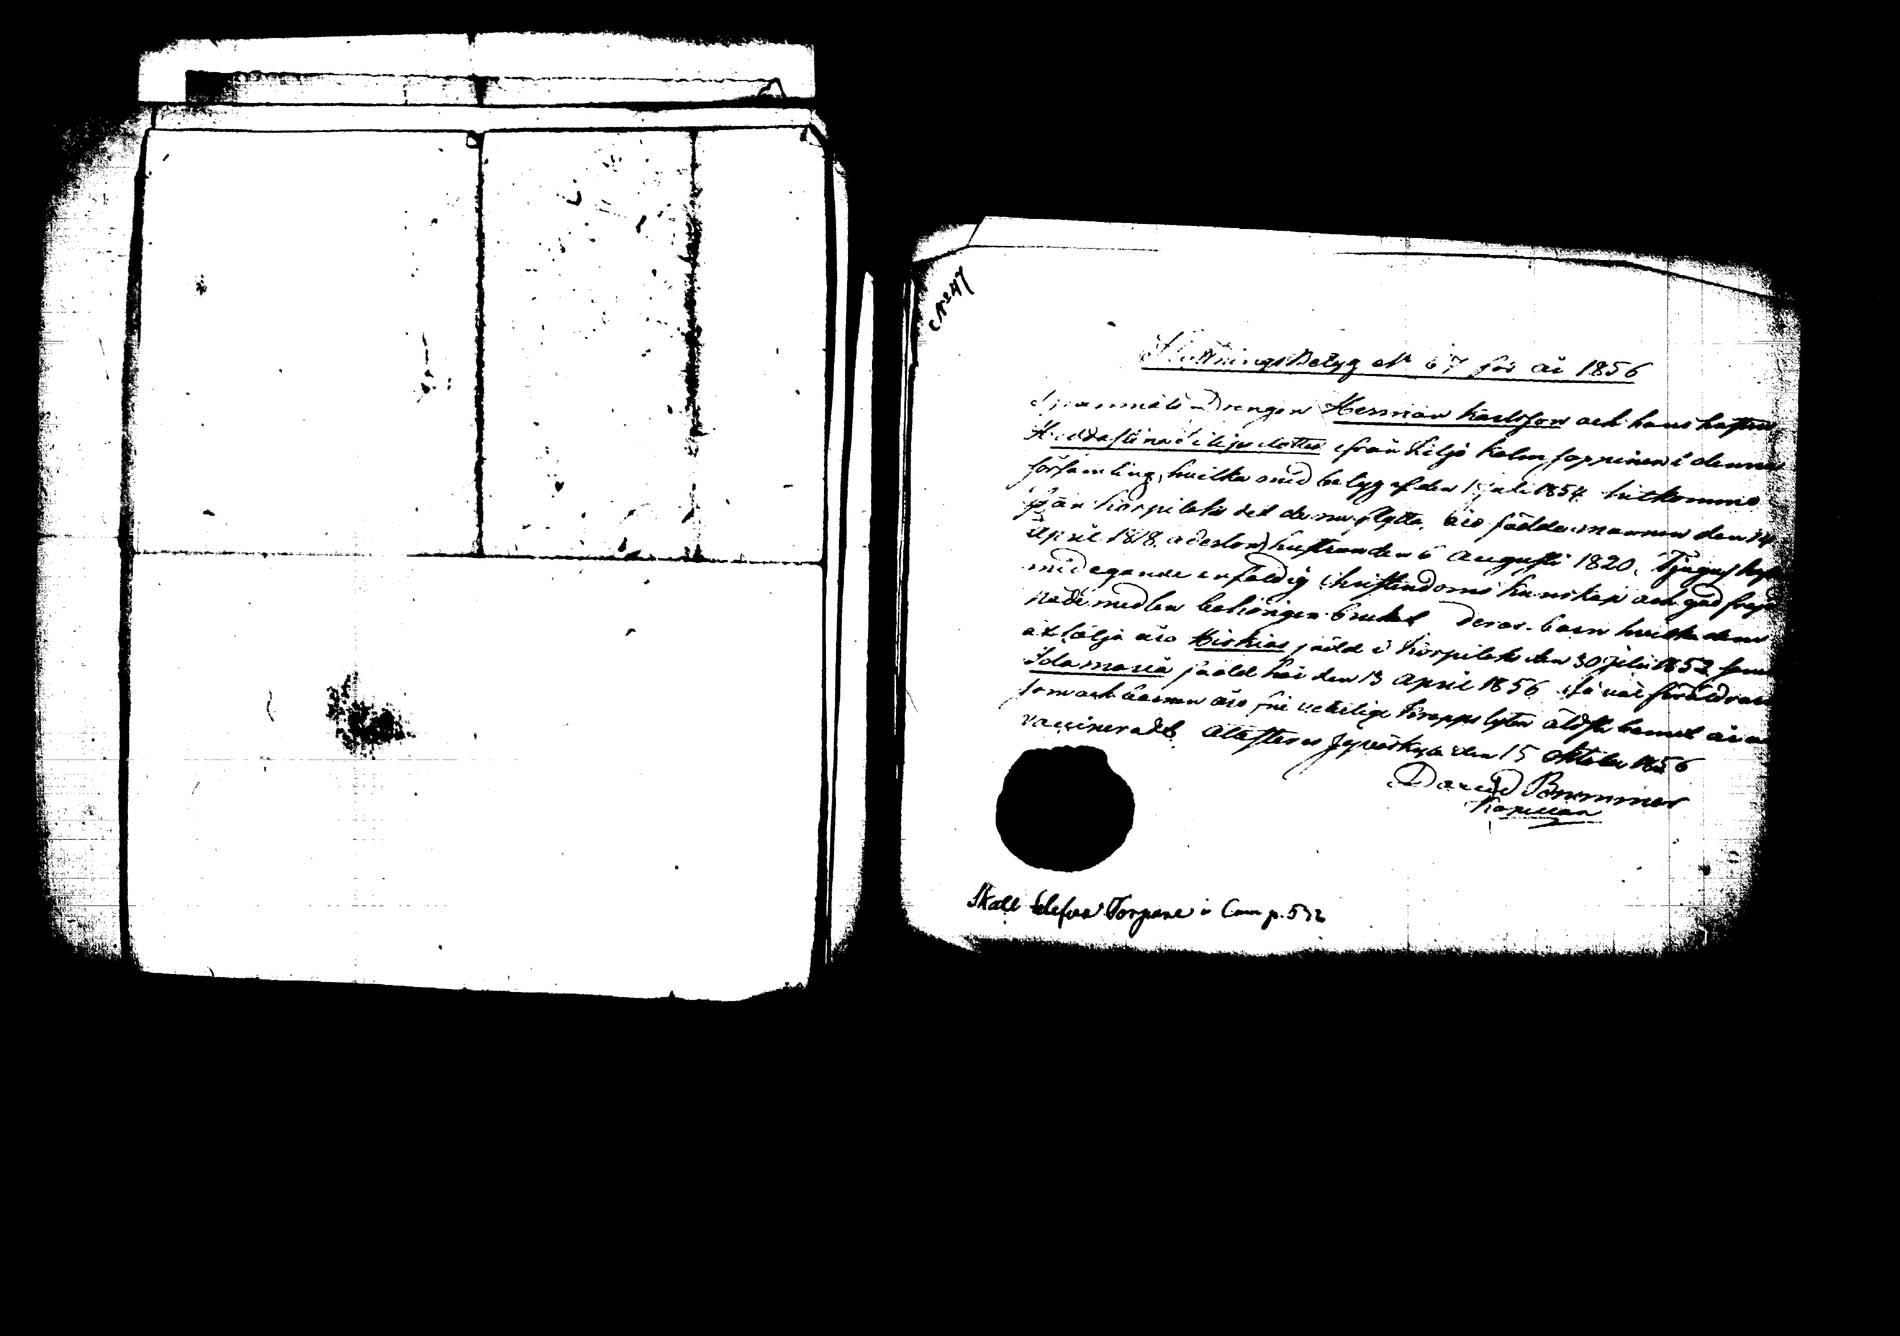 No 247
Flyttnings Betyg No 67 för år 1856
Spannmåls Drengen Herman Karlsson och hans hustru
Hedda Stina Siliusdotter ifrån Liljo Kalm soppinen i denna
församling, hvilka med betyg af den 1 juli 1854 hitkommo
från Korpilaks dit de nu flytta, äro födda: mannen den 14
April 1818 hustrun den 6 Augusti 1820.
med egande enfaldig christendoms kunskap och god frejd
nådemedlen behörigen brukat Deras barn hvilka dem
åtfölja äro Hiskias född i Korpilaks den 30 Juli 1852 samt
Ida Maria född här den 13 April 1856 Så väl föräldrarna
som och barnen äro fria veterliga kroppslyten äldsta barnet är
vaccineradt. Attesteras Jyväskylä den 15 oktober 1856
David Bremmer
Kapellan
Skall Torpare i Com p. 572